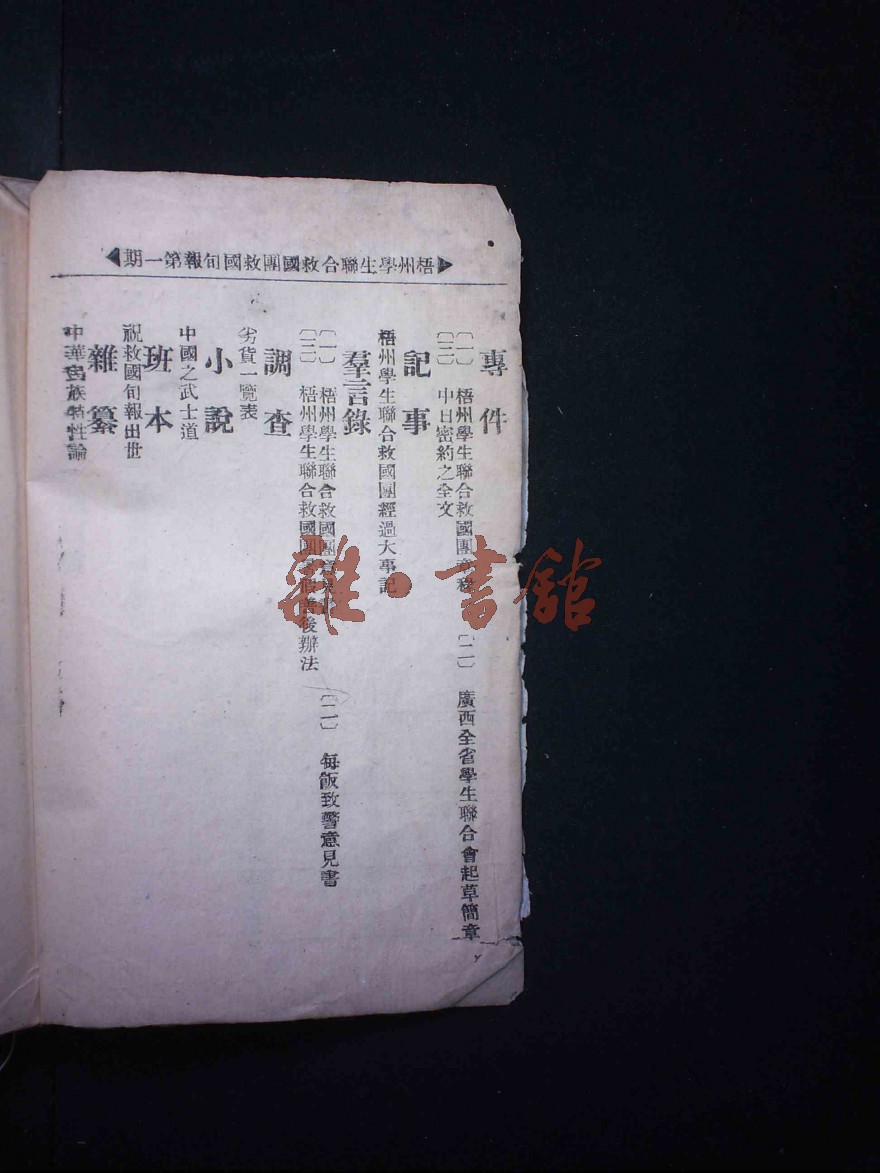 梧州學生聯合救國團救國旬報第一期
專件
〔一〕 梧州學生聯合救國團章程 〔二〕 廣西全省學生聯合會起草簡章
〔三〕 中日密約之全文
記事
梧州學生聯合救國團經過大事記
羣言錄
〔一〕 梧州學生聯合救國團 〔二〕 每飯致警意見書
〔三〕 梧州學生聯合救國團 後辦法
調查
劣貨一覽表
小說
中國之武士道
班本
祝救國旬報出世
雜纂
中華民族特性論
雜·書館